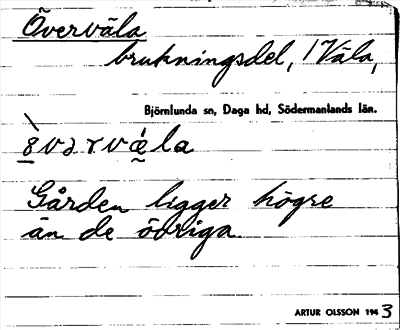 Överväla
brukningsdel, 1 Väla,
Björnlunda sn, Daga hd, Södermanlands län.
Gården ligger högre
än de övriga
ARTUR OLSSON 1943